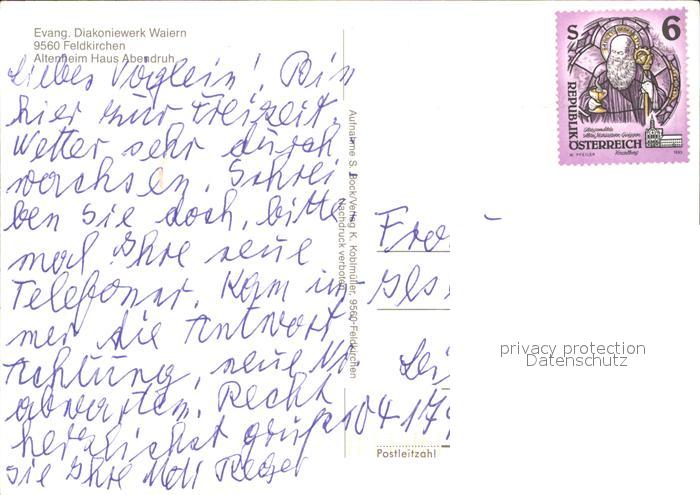 Evang. Diakoniewerk Waiern
9560 Feldkirchen
Altenheim Haus Abendruh
Liebes Vöglein! Bin
hier zur Freizeit.
Wetter sehr durch
wachsen. Schrei
ben Sie doch, bitte
mal Ihre neue
Telefonnr. Kam im-
mer die Antwort
Achtung, neue Nr
abwarten. Recht
herzlichst grüßt
Sie Ihre
Aufnahme S. Bock/Verlag K. Koblmüller, 9560-Feldkirchen
Nachdruck verboten
S 6
REPUBLIK
ÖSTERREICH
W. PFEILER
1993
Fra
Lei
1041
Postleitzahl
privacy protection
Datenschutz